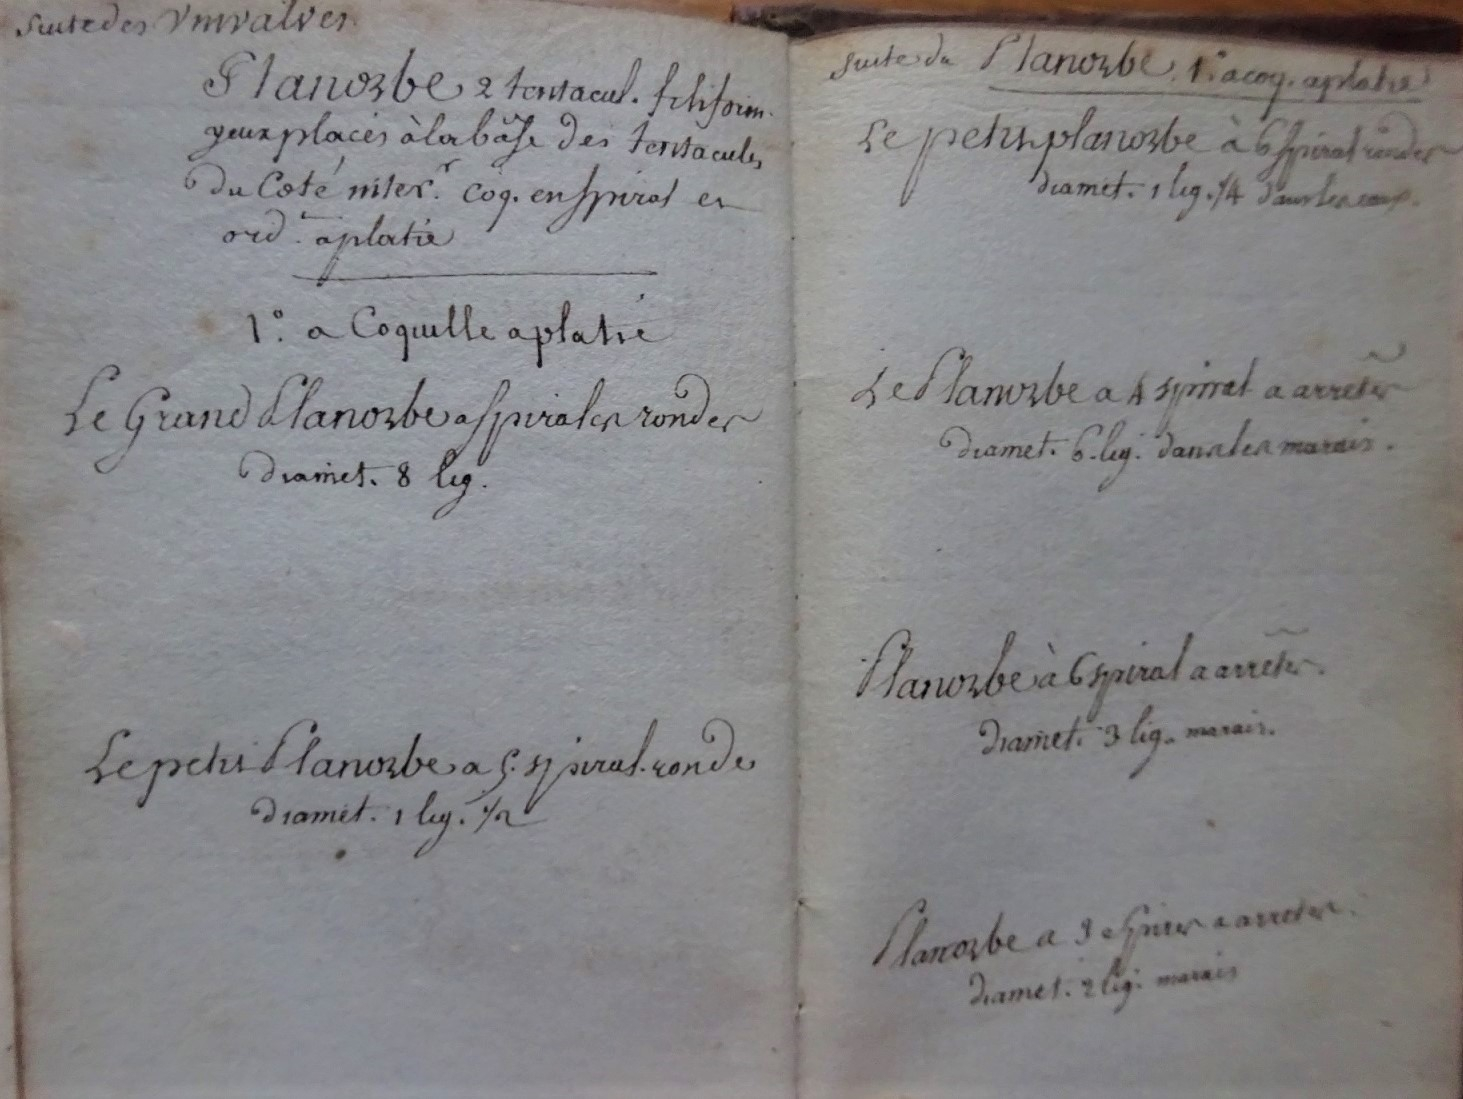 suite des Univalves
Planorbe 2 tentacul. filiform.
yeux placés à la bâse des tentacules
du Coté inter.r coq. en spiral et
ord.r aplatie
1.° a Coquille aplatie
Le Grand Planorbe a spirales rondes
diamet. 8 lig.
Le petit Planorbe a 5. spiral. ronde
diamet. 1 lig. 1/2
suite du Planorbe. 1.° a coq. aplatie
Le petit planorbe à 6 spiral rondes
diamet. 1 lig. 1/4 dans les eaux.
Le Planorbe a 4 spiral a arretes
diamet. 6. lig. dans les marais.
Planorbe à 6 spiral a arrêtes.
diamet. 3 lig. marais.
Planorbe a 3 espires a arretes.
diamet. 2 lig. marais